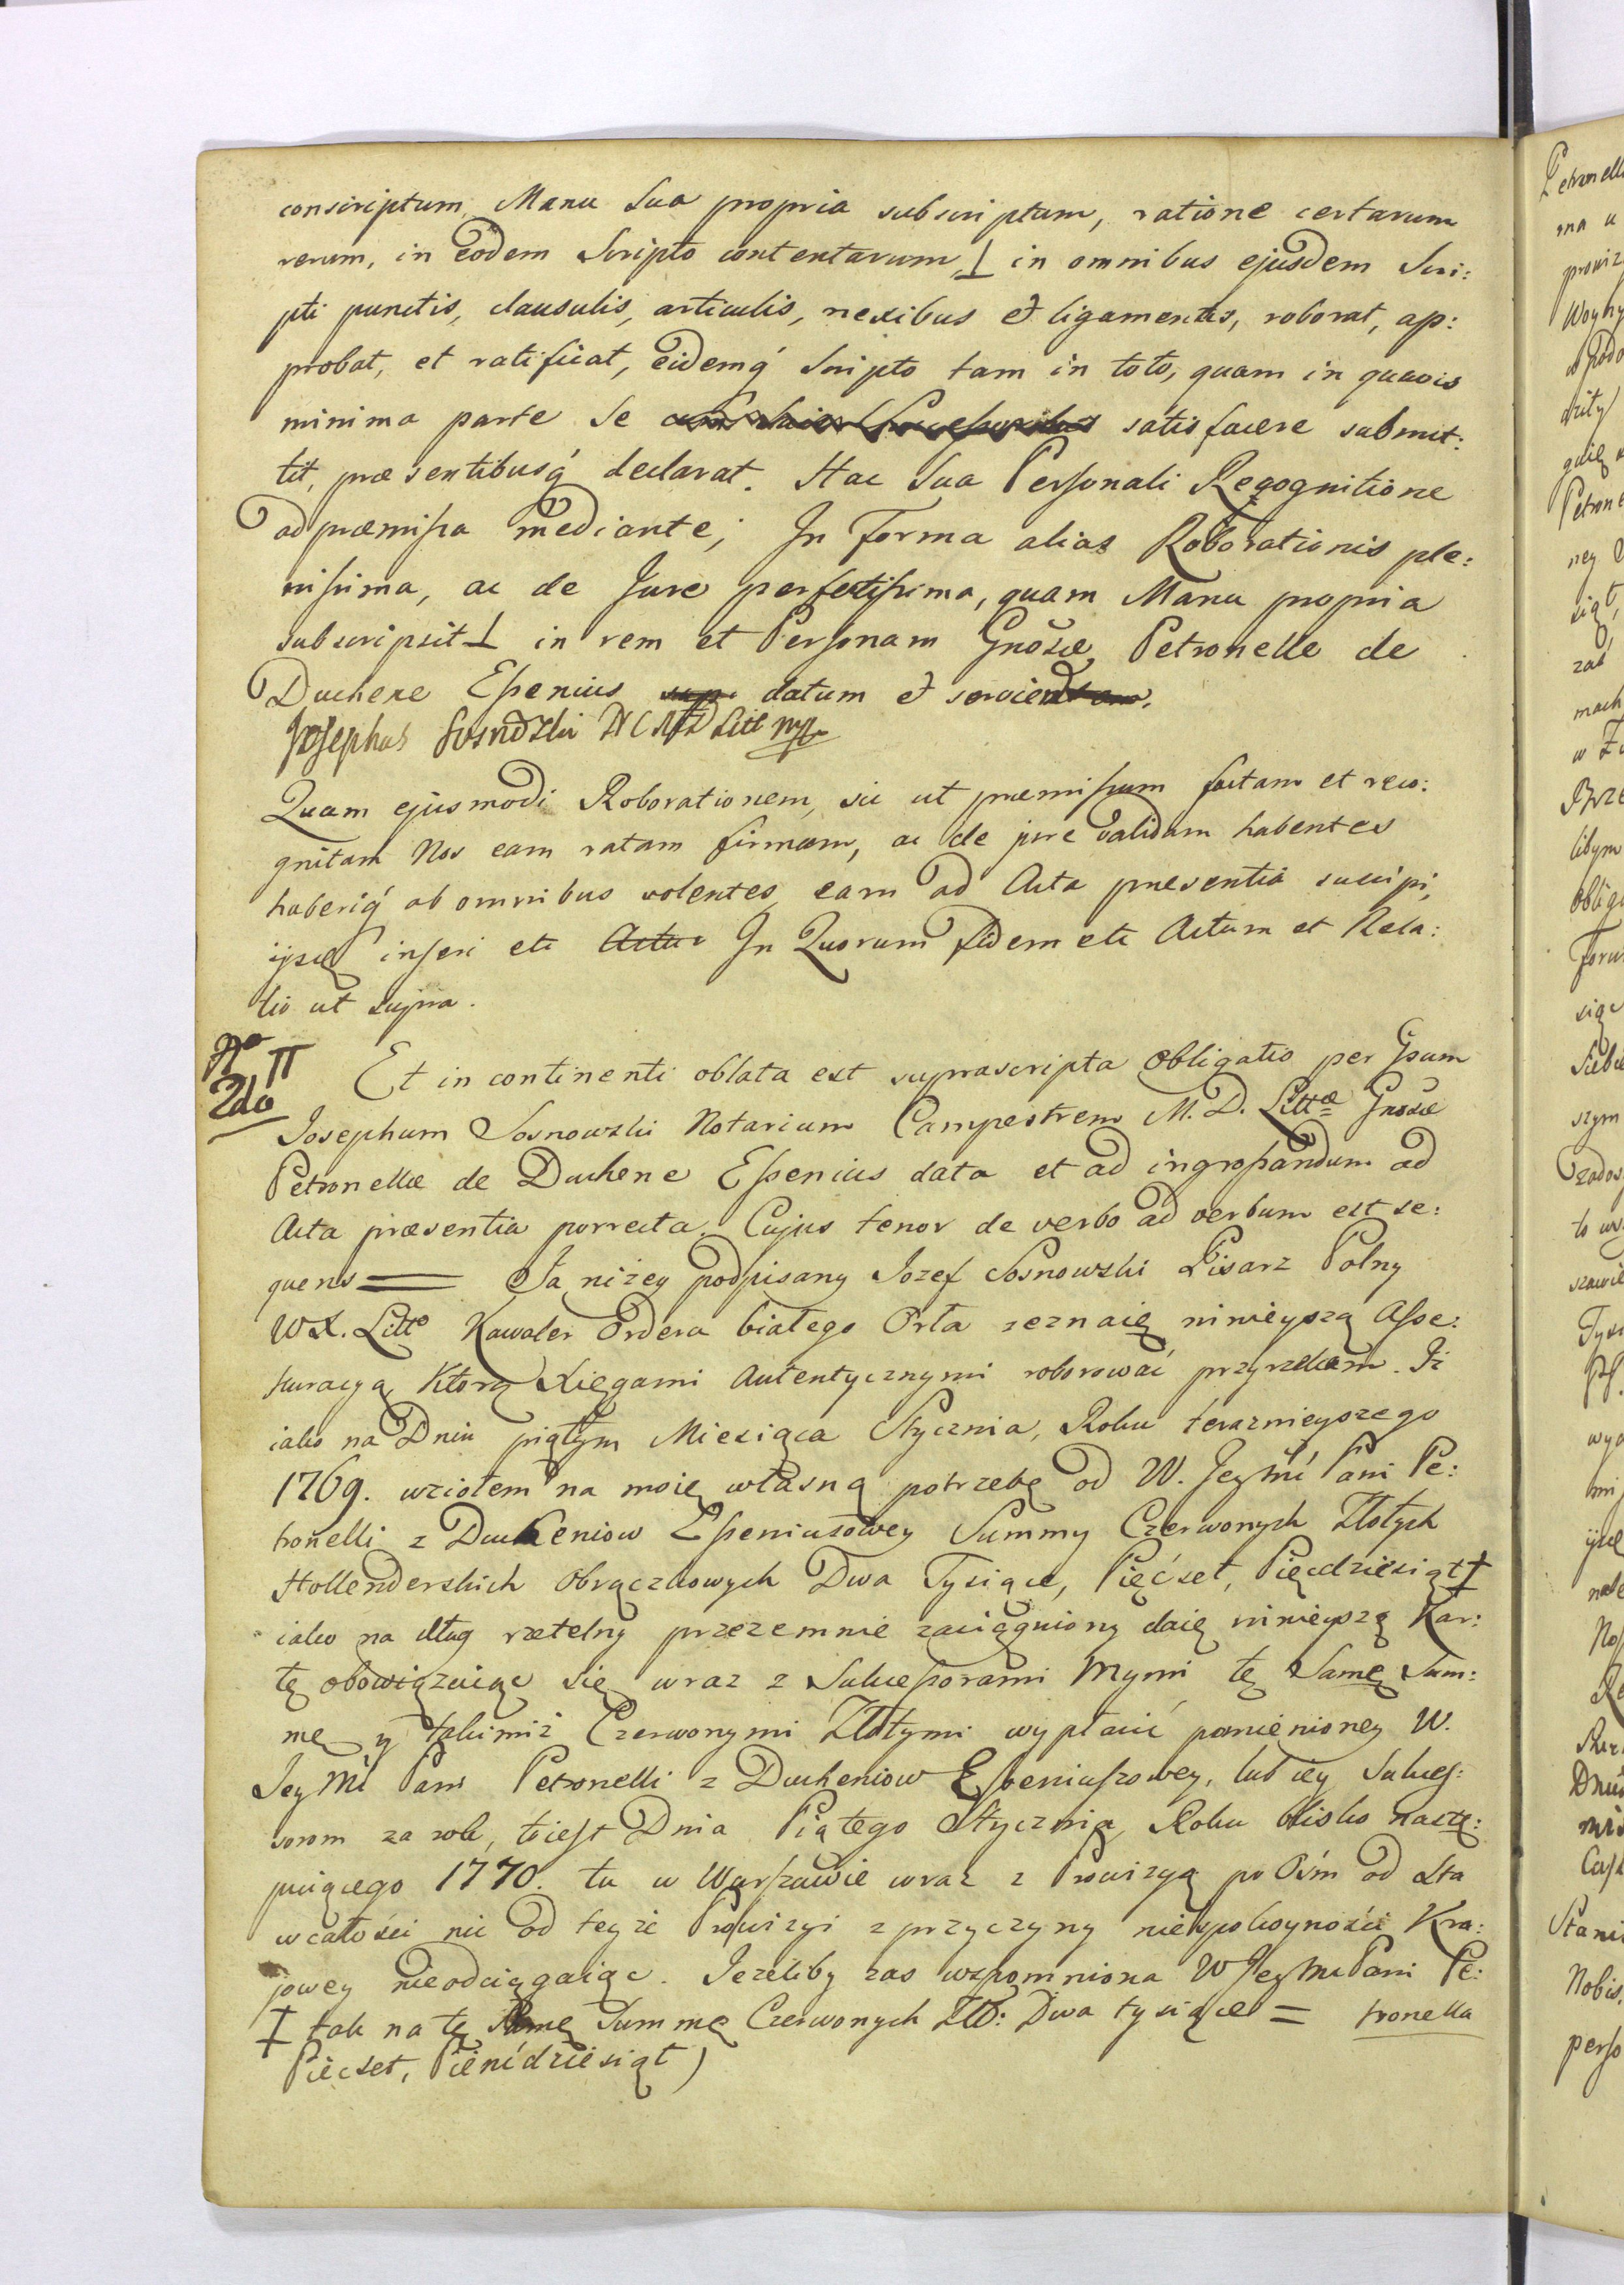 conscriptum, Manu Sua propria subscriptum, ratione certarum
rerum, in eodem Scripto contentarum, ⊥ in omnibus ejusdem Scri:
pti punctis, clausulis, articulis, nexibus et ligamentis, roborat, ap:
probat, et ratificat, eidemq́ Scripto tam in toto, quam in quavis
minima parte Se satisfacere submit:
tit, præsentibusq́ declarat. Hac Sua Personali Recognitione
ad præmissa mediante; In Forma alias Roborationis ple:
nissima, ac de Jure perfectissima, quam Manu propria
subscripsit ⊥ in rem et Personam Gnosæ Petronelle de
Duchene Essenius datum et serviend
Josephus Sosnowski N C M D Litt mp
Quam ejusmodi Roborationem, sic ut præmissum factam et reco:
gnitam Nos eam ratam firmam, ac de jure validam habentes
haberiq́ ab omnibus volentes, eam ad Acta præsentia suscipi,
ijsq inseri etc Actu In Quorum fidem etc Actum et Rela:
tio ut supra.
No II
2do
Et in continenti oblata est suprascripta Obligatio per Gsum
Josephum Sosnowski Notarium Campestrem M. D. Littæ Gnosæ
Petronellæ de Duchene Essenius data et ad ingrossandum ad
Acta præsentia porrecta. Cujus tenor de verbo ad verbum est se:
quens == Ja niżey podpisany Jozef Sosnowski Pisarz Polny
W X. Litt° Kawaler Ordera białego Orła zeznaię ninieyszą Asse:
kuracyą Ktorą Xięgami Autentycznymi roborować przyrzekam. Iż
iako na Dniu piątym Miesiąca Stycznia, Roku teraznieyszego
1769. wziołem na moię własną potrzebę od W. Jeymći Pani Pe:
tronelli z Ducheniow Esseniusowey Summy Czerwonych Złotych
Hollenderskich Obrączkowych Dwa Tysiące, Pięćset, Pięcdziesiąt ‡
iako na dług rzetelny przezemnie zaciągniony daię ninieyszą Kar:
tę obowiązuiąc się wraz z Sukcessorami Mymi tę Samę Sum:
mę y takimiż Czerwonymi Złotymi wypłacić pomienioney W.
Jey Mć Pani Petronelli z Ducheniow Esseniuszowey, lub iey Sukces:
sorom za rok, toiest Dnia Piątego Stycznia, Roku blisko nastę:
puiącego 1770. tu w Warszawie wraz z Prowizyą po Ośm od sta
w całości nic od teyże Prowizyi z przyczyny niespokoyności Kra:
jowey nieodciągaiąc. Jezeliby zas wspomniona W Jeymć Pani Pe:
‡ tak na tę Samę Summę Czerwonych Złł: Dwa tysiące = tronella
Pięcset, Pienćdziesiąt)